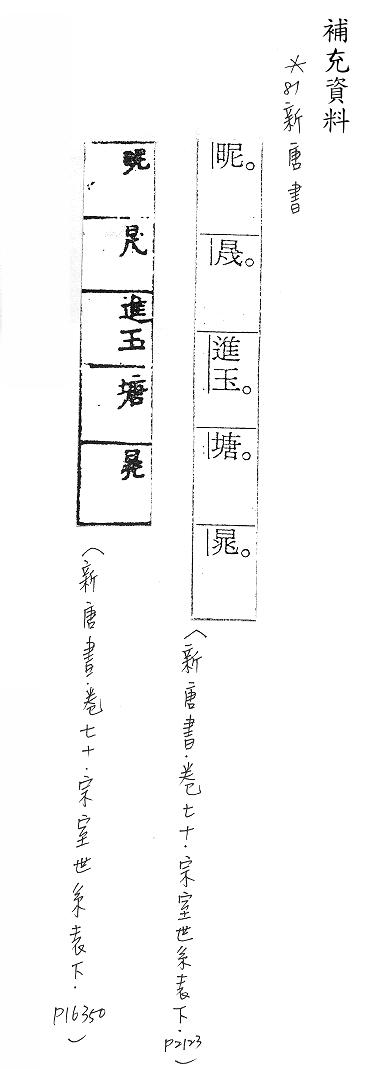 補充資料
※81新唐書
昵。
晟。
進玉。
塘。
晁。
(新唐書·卷七十·宗室世系表下·P2123)
進玉
塘
(新唐書·卷七十·宗室世系表下·P16350)